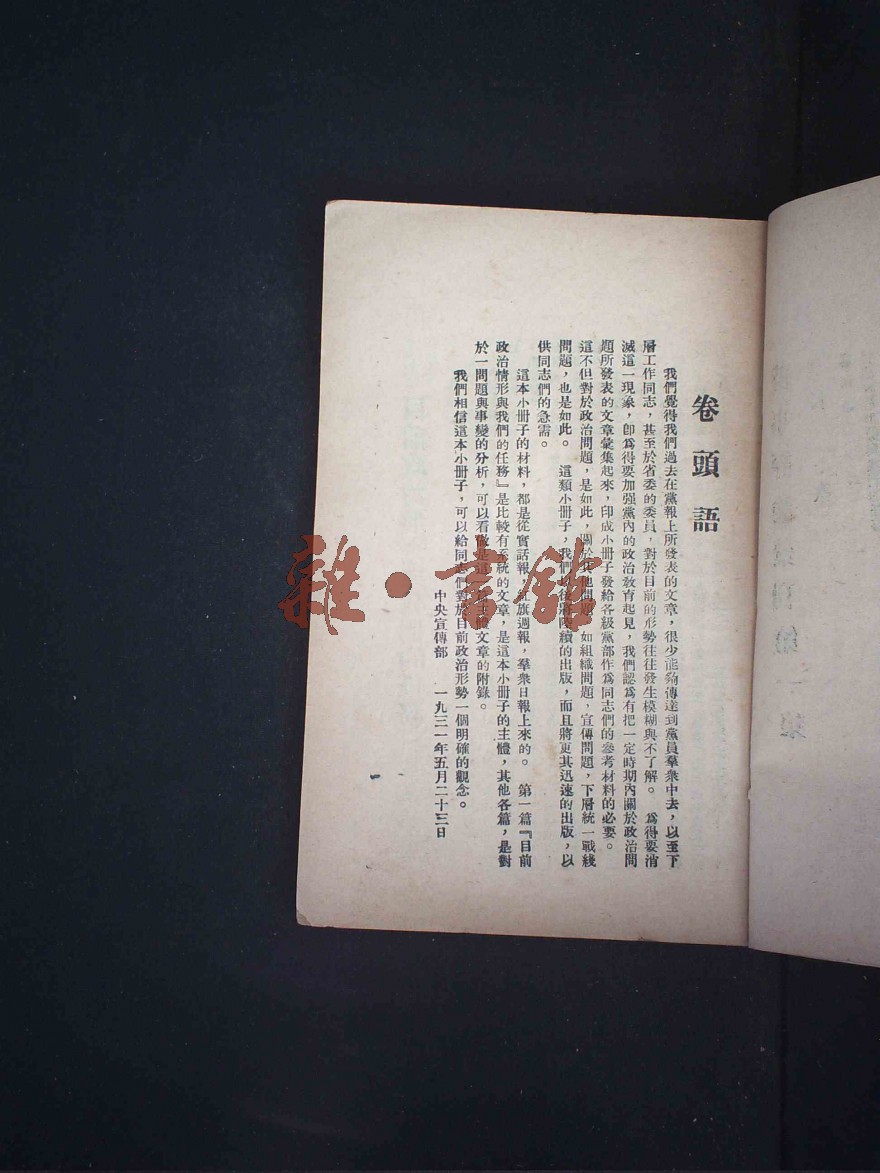 卷頭語
我們覺得我們過去在黨報上所發表的文章，很少能夠傳達到黨員羣衆中去，以至下
層工作同志，甚至於省委的委員，對於目前的形勢往往發生模糊與不了解。　爲得要消
滅這一現象，卽爲得要加强黨內的政治敎育起見，我們認爲有把一定時期內關於政治問
題所發表的文章彙集起來，印成小册子發給各級黨部作爲同志們的參考材料的必要。
這不但對於政治問題，是如此，關於其他問題，如組織問題，宣傳問題，下層統一戰綫
問題，也是如此。　這類小册子，我們以後將陸續的出版，而且將更其迅速的出版，以
供同志們的急需。
這本小册子的材料，都是從實話報，紅旗週報，羣衆日報上來的。　第一篇『目前
政治情形與我們的任務』是比較有系統的文章，是這本小册子的主體，其他各篇，是對
於一問題與事變的分析，可以看做是這主體文章的附錄。
我們相信這本小册子，可以給同志們對於目前政治形勢一個明確的觀念。
中央宣傳部　一九三一年五月二十三日
雜·書館